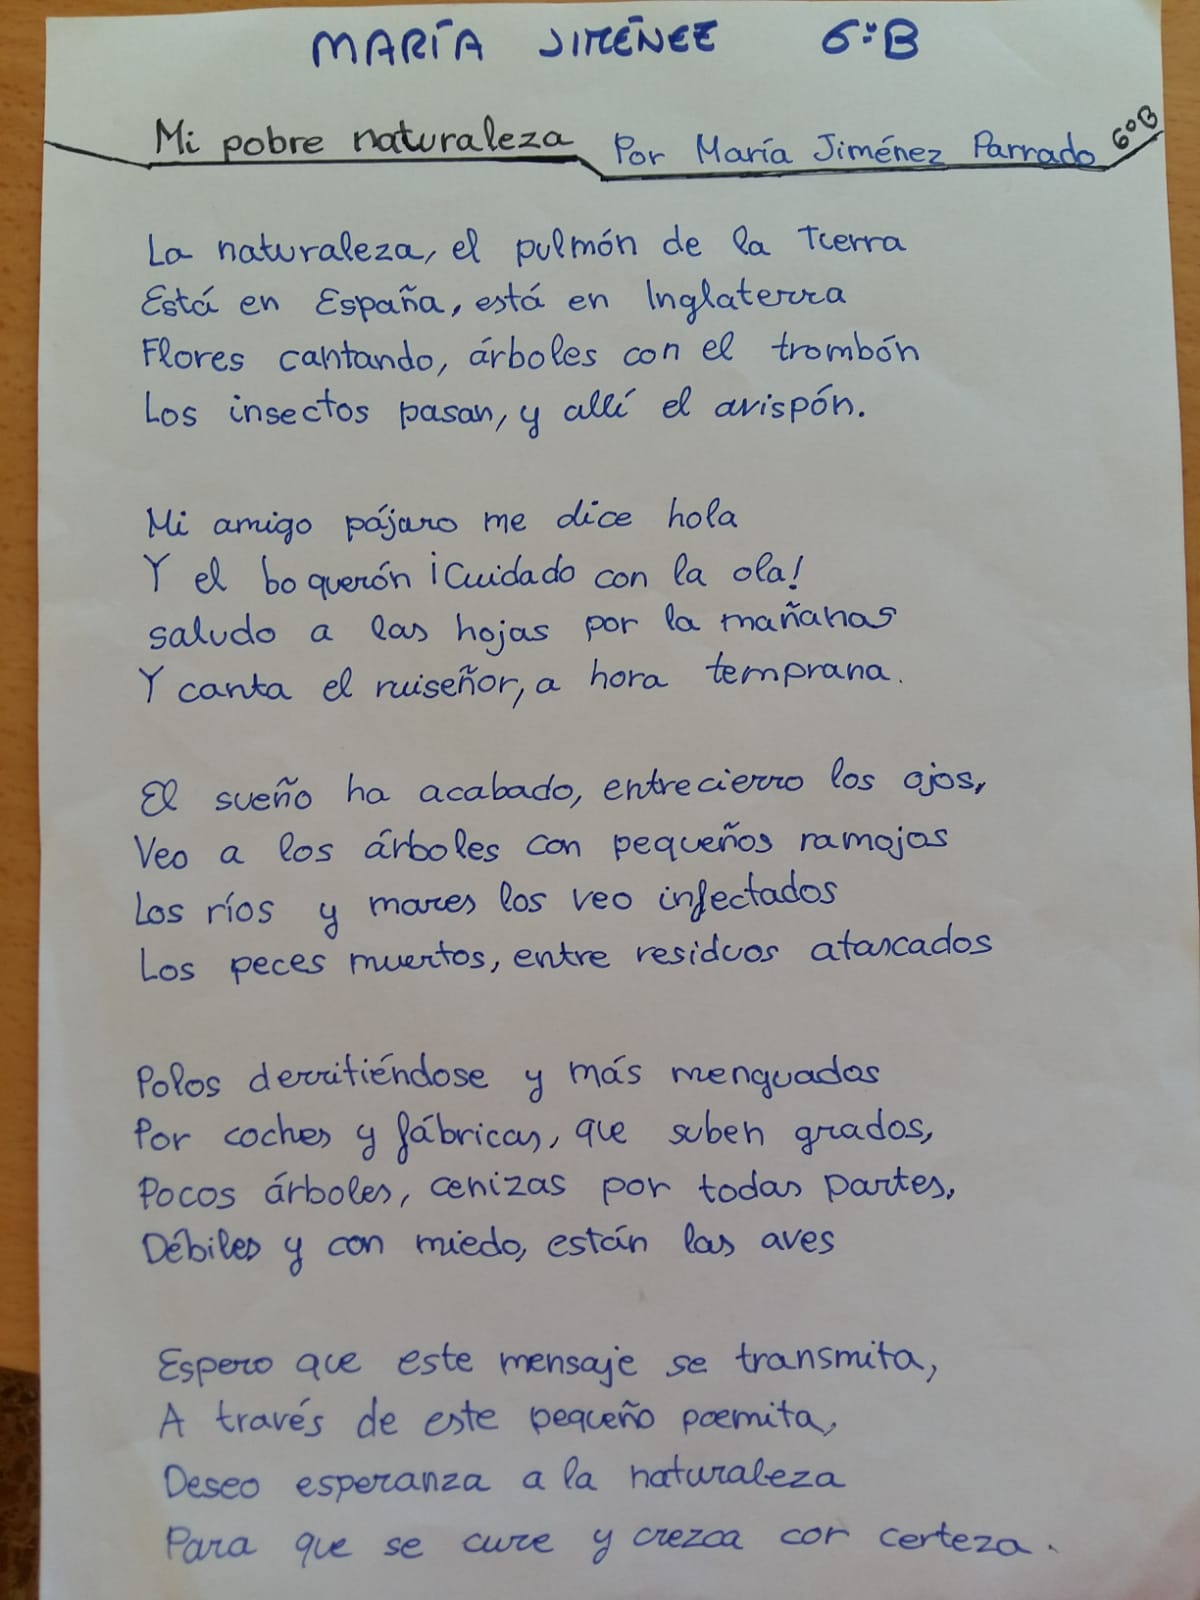 MARÍA JIMÉNEZ 6ºB
Mi pobre naturaleza Por María Jiménez Parrado 6ºB
La naturaleza, el pulmón de la Tierra
Está en España, está en Inglaterra
Flores cantando, árboles con el trombón
Los insectos pasan, y allí el avispón.
Mi amigo pájaro me dice hola
Y el boquerón ¡Cuidado con la ola!
saludo a las hojas por la mañanas
Y canta el ruiseñor, a hora temprana.
El sueño ha acabado, entrecierro los ojos,
Veo a los árboles con pequeños ramojos
Los ríos y mares los veo infectados
Los peces muertos, entre residuos atascados
Polos derritiéndose y más menguados
Por coches y fábricas, que suben grados,
Pocos árboles, cenizas por todas partes,
Débiles y con miedo, están las aves
Espero que este mensaje se transmita,
A través de este pequeño poemita,
Deseo esperanza a la naturaleza
Para que se cure y crezca con certeza.